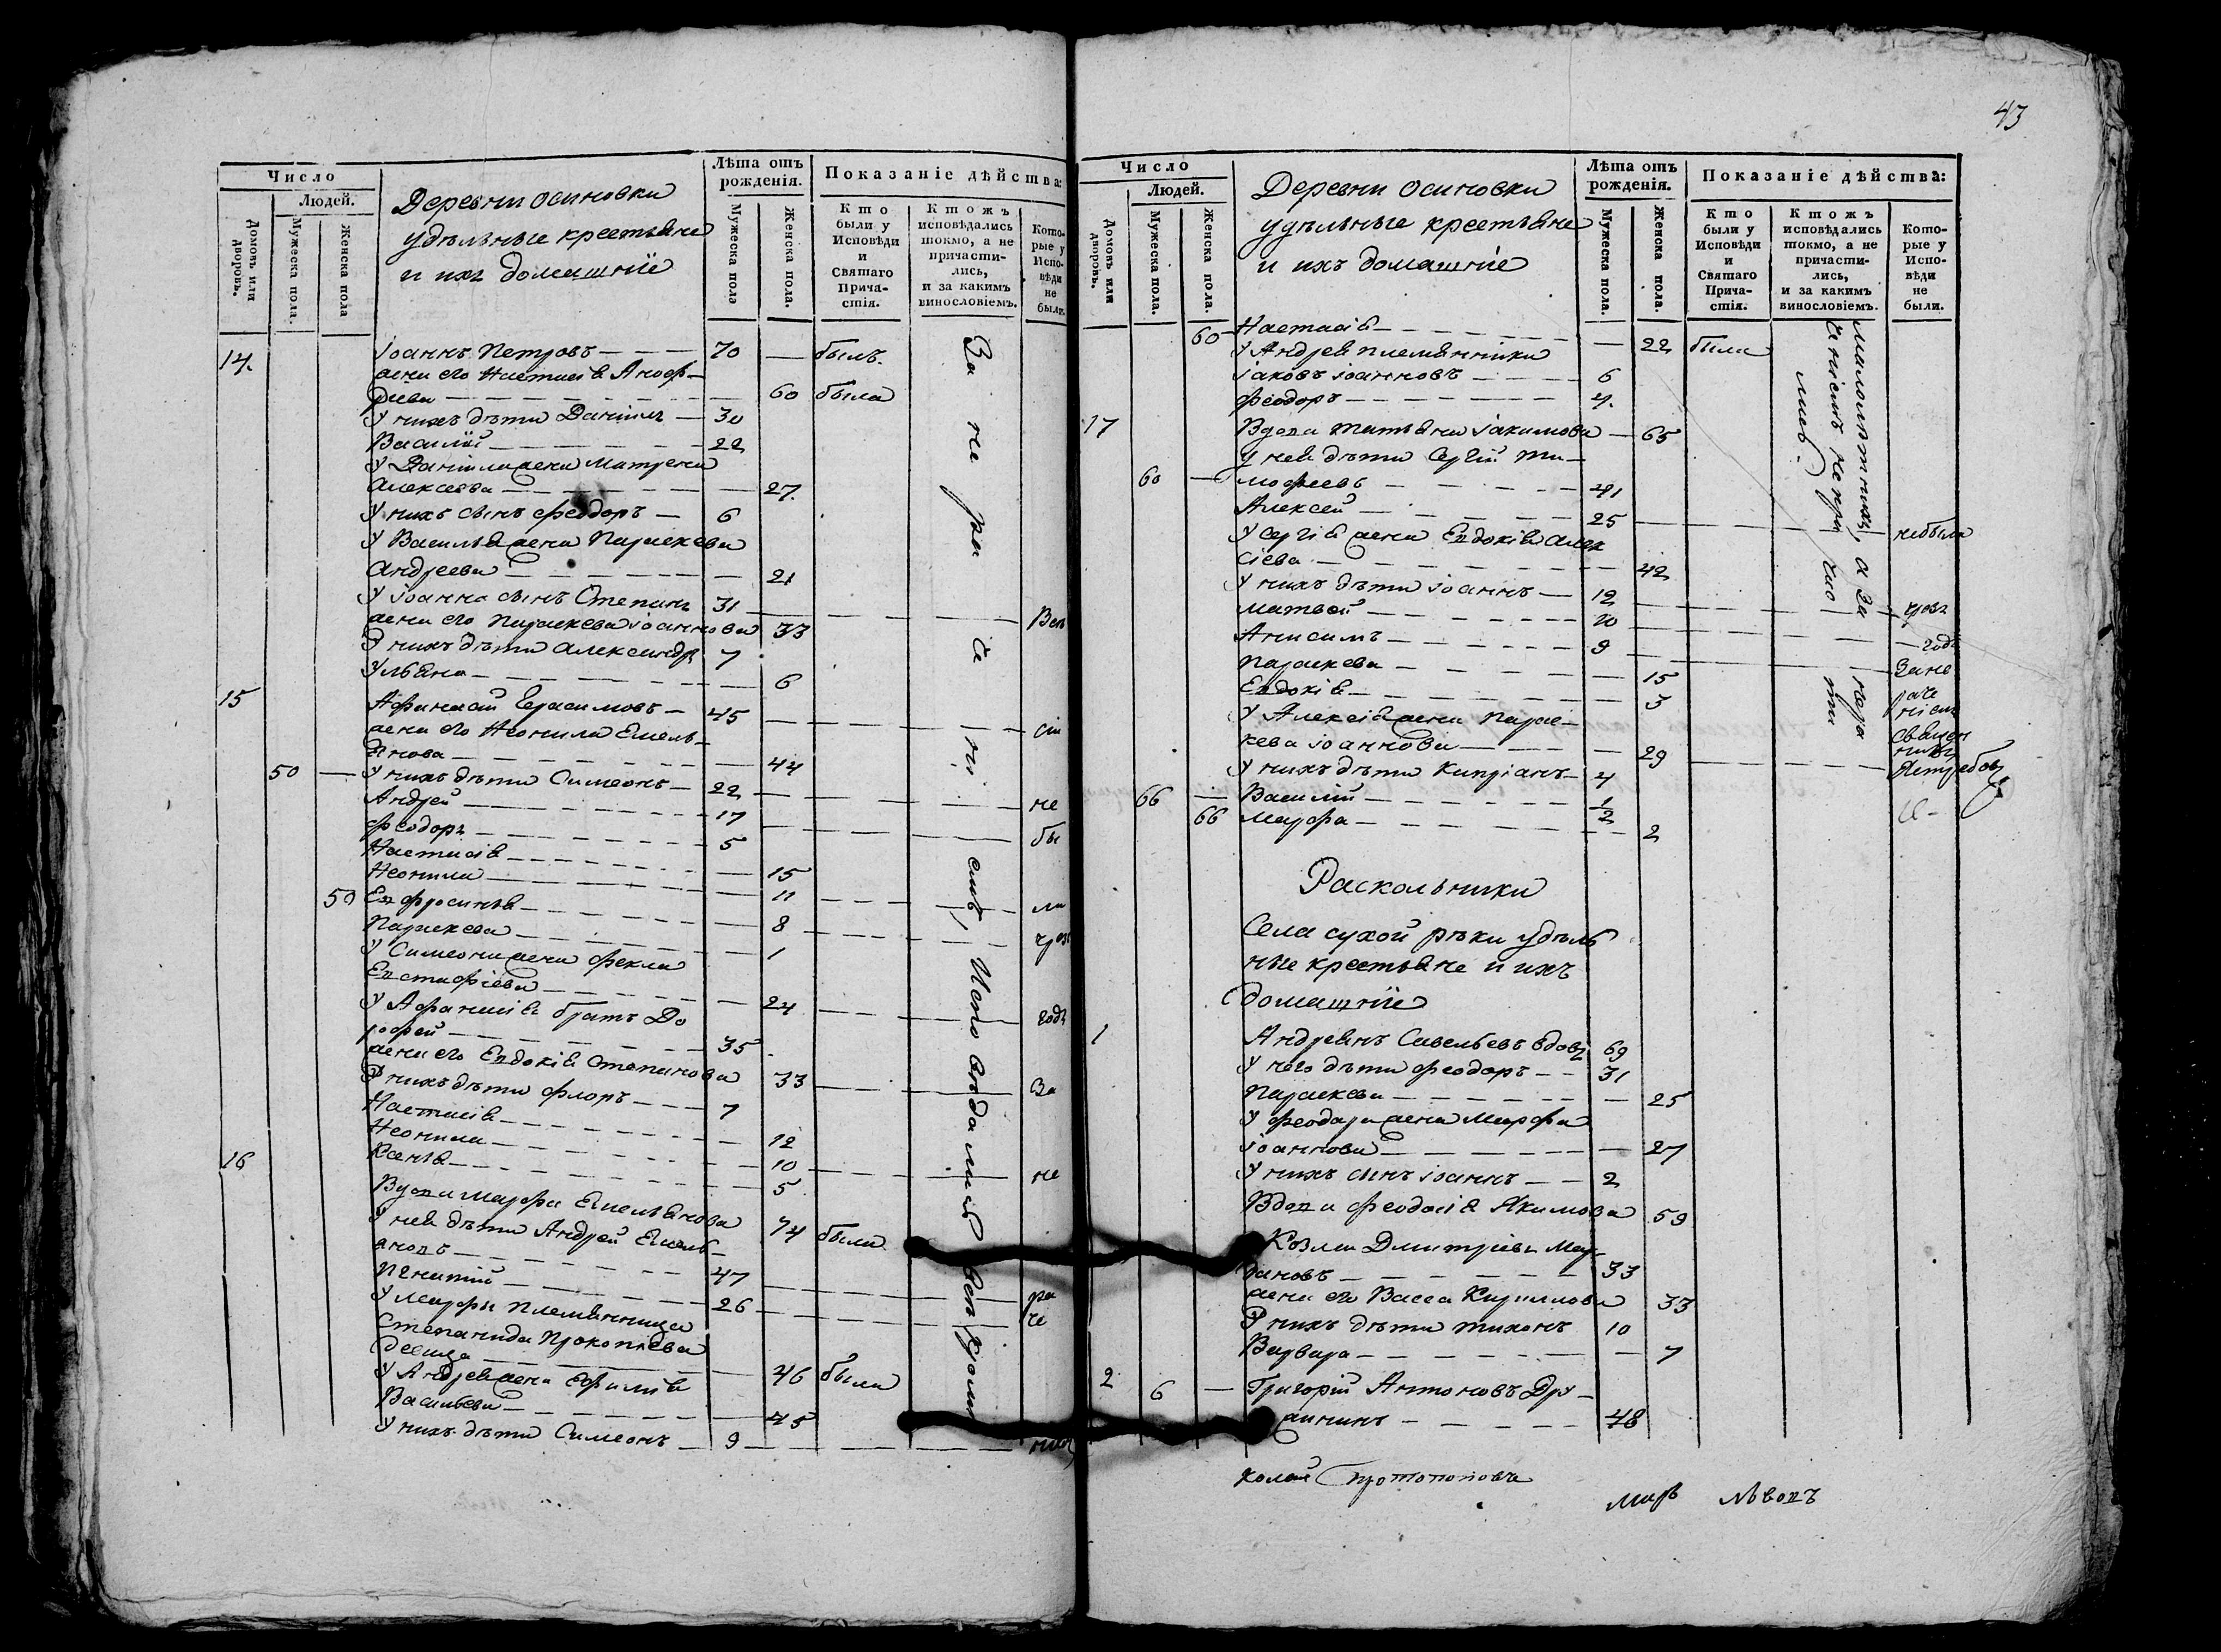 43
Число
Людей.
Домовъ или дворовъ.
Мужеска пола.
Женска пола
Деревни Осиновки
удѣльные крестьяне
и ихъ домашніе
Лѣта отъ рожденія.
Мужеска пола
Женска пола.
Показаніе дѣйства:
Кто были у Исповѣди и Святаго Причастія.
Ктожъ исповѣдались токмо, а не причастились, и за какимъ винословіемъ.
Которые у Исповѣди не были.
14. Іоаннъ Петровъ — 70 — былъ
жена его Настасія Аноф-
рiева — 60 была
У нихъ дѣти Даніилъ — 30
Василій — 22
У Даніила жена Матрена
Алексеева — 27.
У нихъ сынъ Феодоръ — 6
У Василья жена Параскева
Андреева — 21
У Іоанна сынъ Степанъ 31
жена его Параскева Іоаннова 33
У нихъ дѣти Александръ 7
Ульяна — 6
15 Афанасій Герасимовъ — 45
жена его Неонила Емель-
янова — 44
50 — У нихъ дѣти Симеонъ — 22 не
Андрей — 17
Феодоръ — 5 бы
Настасія — 15
Неонила — 11
50 Евфросинья — 8 ли
Параскева — 1
У Симеона жена Фекла
Евстафіева — 24
У Афанасія братъ До
рофей — 35
жена его Евдокія Степанова 33 За
У нихъ дѣти Флоръ — 7
Настасія — 12
Неонила — 10 не
Ксенія — 5
16 Вдова Марфа Емельянова 74 была
У нея дѣти Андрей Емель-
яновъ — 47
Игнатій — 26 ра
че
У Марфы племянница
Степанида Прокопіева
Девица — 46 была
У Андрея жена Ефимія
Васильева — 45
У нихъ дѣти Симеонъ — 9
За не ра че ні емъ,
Число
Людей.
Домовъ или дворовъ.
Мужеска пола.
Женска пола.
Деревни Осиновки
удѣльные крестьяне
и ихъ домашніе
Лѣта отъ рожденія.
Мужеска пола.
Женска пола.
Показаніе дѣйства:
Кто были у Исповѣди и Святаго Причастія.
Ктожъ исповѣдались токмо, а не причастились, и за какимъ винословіемъ.
Которые у Исповѣди не были.
60 Настасія — 22 была
У Андрея племянники
Іаковъ Іоанновъ — 6
Феодоръ — 4.
17 Вдова Татьяна Іакимова — 65
У нея дѣти Сергій Ти-
60 — мофеевъ — 41
Алексей — 25 небыли
У Сергія жена Евдокія Алек
сіева — 42
У нихъ дѣти Іоаннъ — 12
Матвей — 10
Анисимъ — 9 годъ
Параскева — 15 Зане
Евдокія — 3 раче
ніем
У Алексія жена Парас-
кева Іоаннова — 29
У нихъ дѣти Кипріанъ — 4
66 — Василій — 1/2
66 Марфа — 2
малолѣтнихъ, а за
Священ
никъ
Раскольники
Села сухой рѣки удѣль
ные крестьяне и ихъ
домашніе
1 Андреянъ Савельевъ вдовъ 69
У него дѣти Феодоръ — 31
Параскева — 25
У Феодора жена Марфа
Іоаннова — 27
У нихъ сынъ Іоаннъ — 2
Вдова Феодосія Якимова 59
Козма Дмитріевъ Мар
— 33
жена его Васса Кирилова 33
У нихъ дѣти Тихонъ 10
Варвара — 7
2 6 — Григорій Антоновъ Дру-
жининъ — 48
колай Протопоповъ